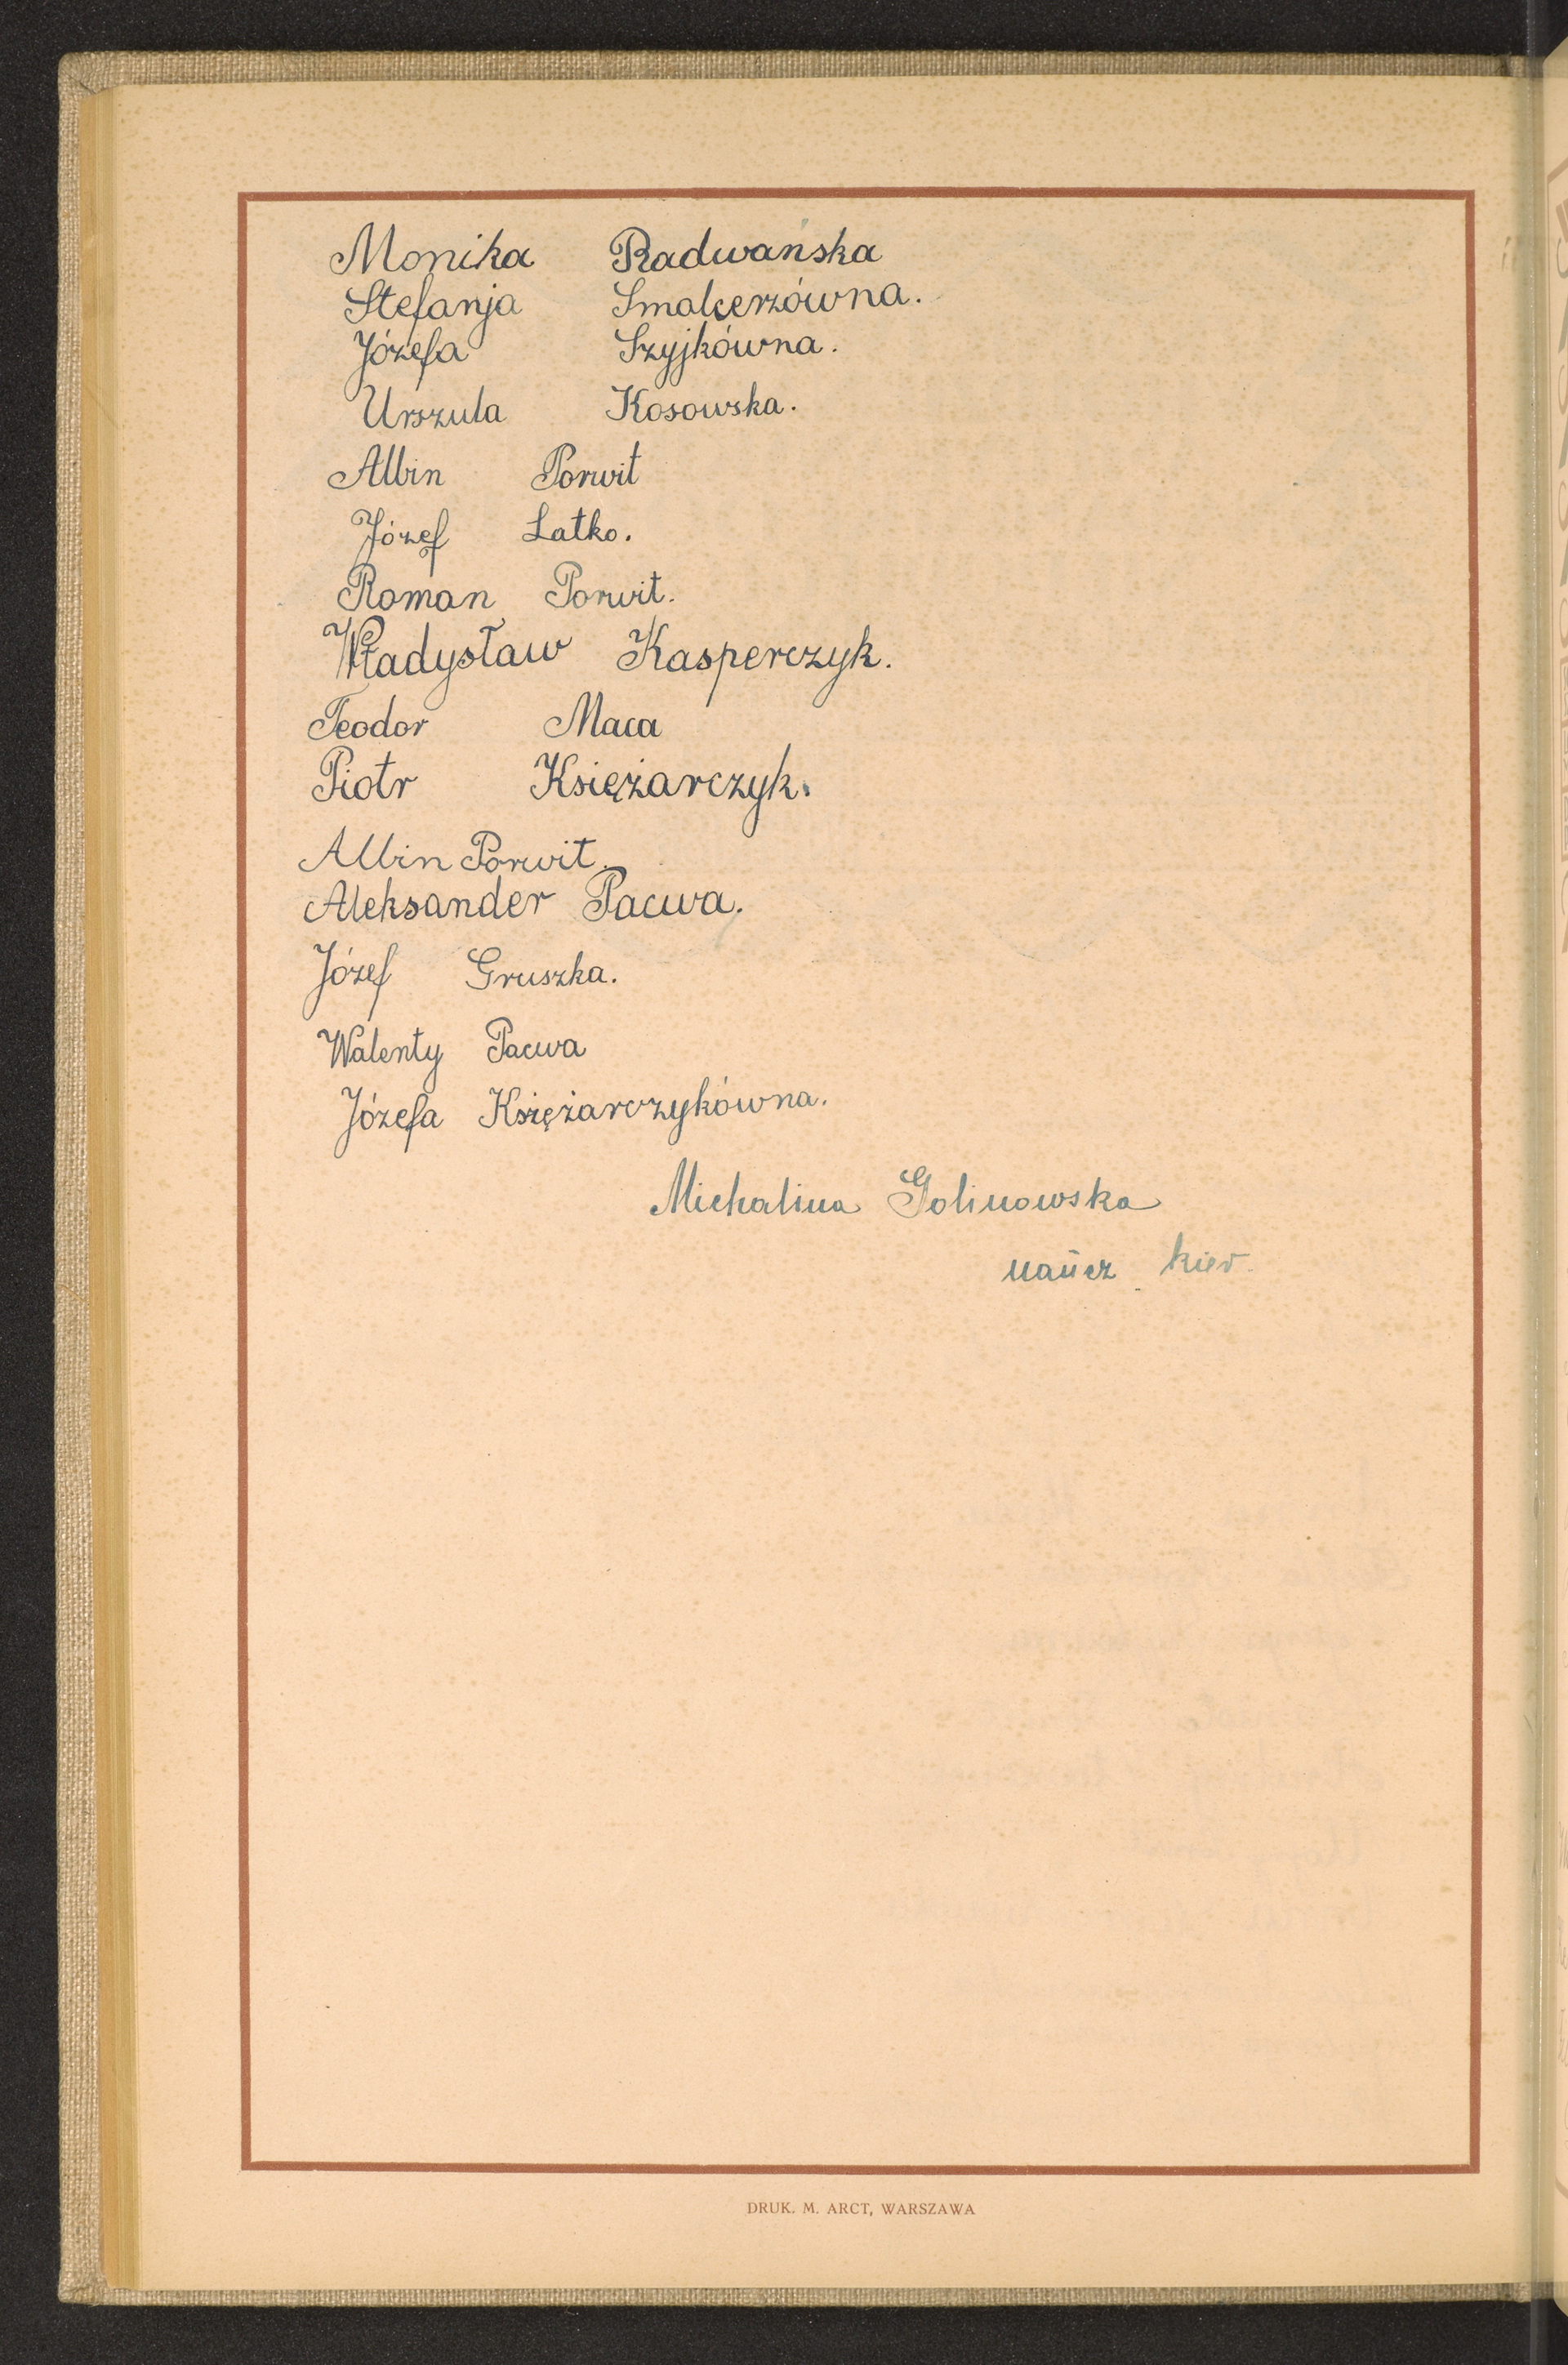 Monika Radwańska
Stefanja Smalcerzówna.
Józefa Szyjkówna.
Urszula Kosowska.
Albin Porwit
Józef Latko.
Roman Porwit.
Władysław Kasperczyk.
Teodor Maca
Piotr Księżarczyk.
Albin Porwit.
Aleksander Pacwa.
Józef Gruszka.
Walenty Pacwa
Józefa Księżarczykówna.
Michalina Golinowska
naucz. kier.
DRUK. M. ARCT, WARSZAWA